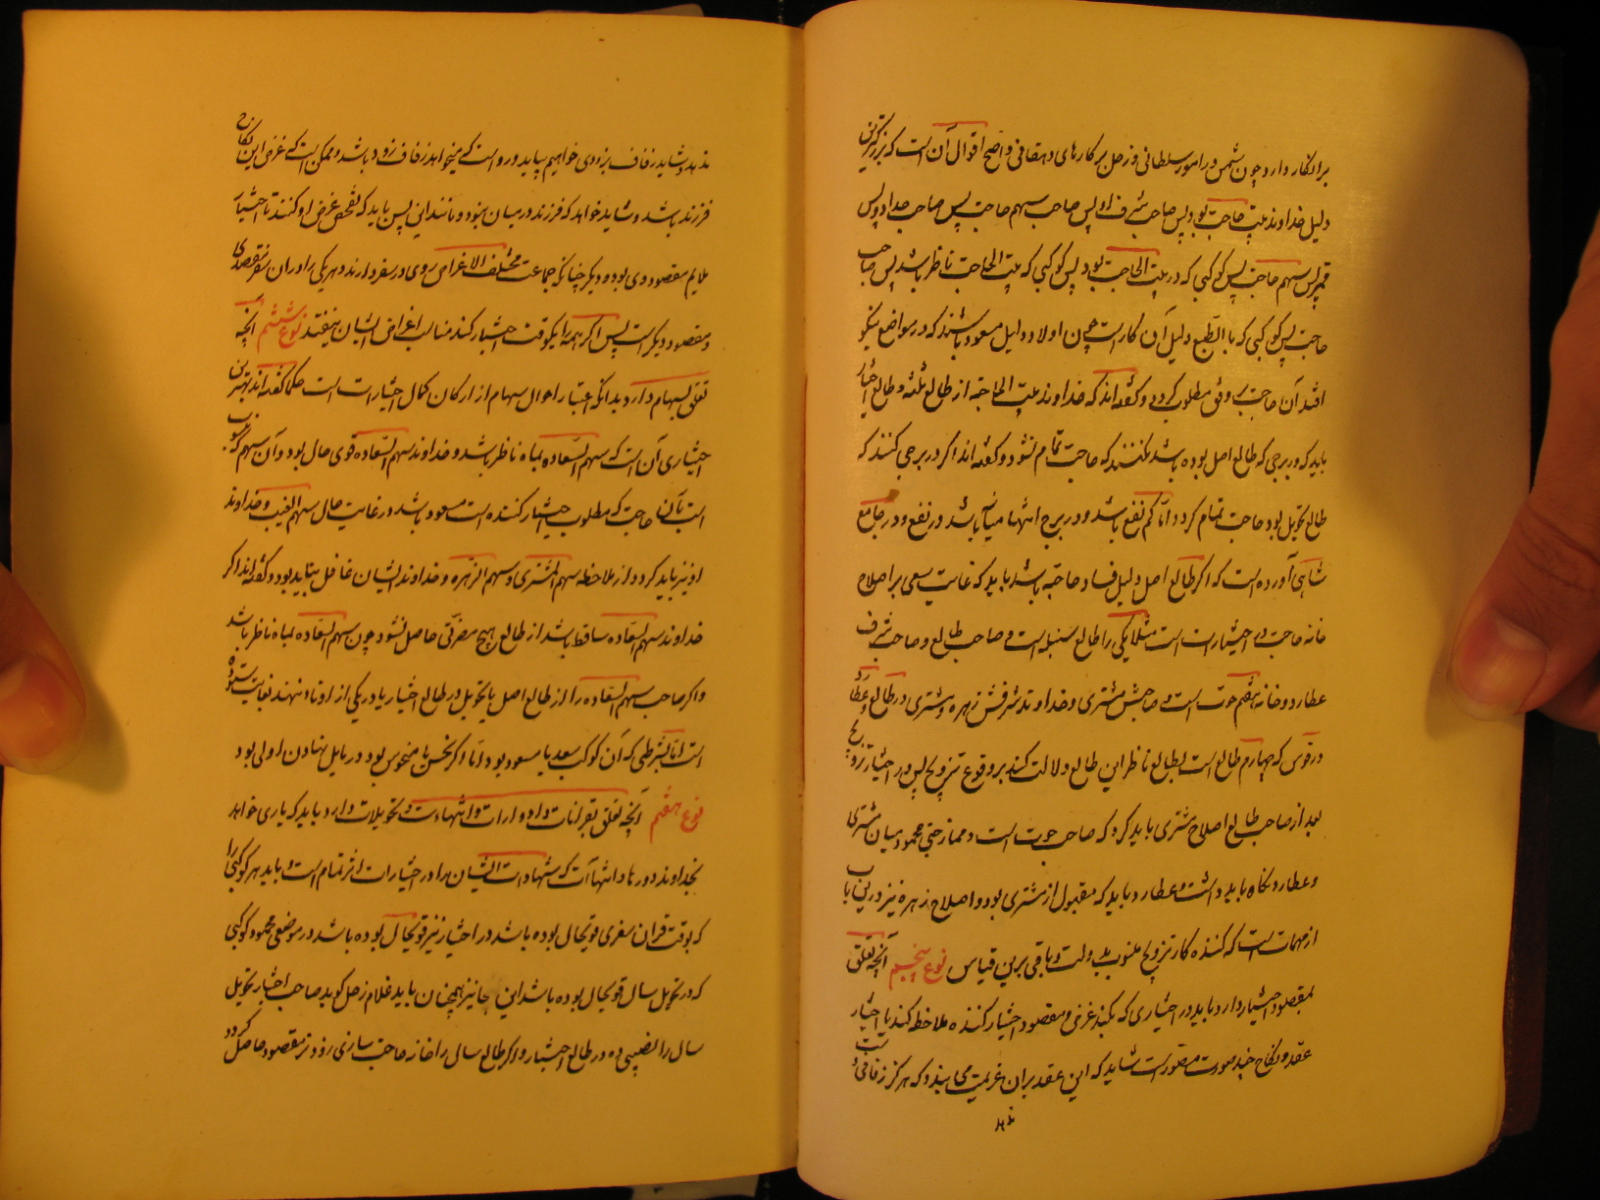 برانکار دارد چون شمس در امور سلطانی و زحل بر کارهای دهقانی و اصح اقوال آن است که بزرکترین
دلیل خداوند بیت حاجت بود پس صاحب شرف او پس صاحب سهم حاجت پس صاحب حد او و پس
قمر پس سهم حاجت پس کوکبی که در بیت الحاجت بود پس کوکبی که ببیت الحاجت ناظر باشد پس صاحب
حاجت پس کوکبی که بالطبع دلیل آن کار است چون اولاد و دلیل مسعود باشند که در مواضع نیکو
افتد آن حاجت بر وفق مطلوب کردد و کفته اند که خداوند بیت الحاجة از طالع ثلثه و طالع اختیار
باید که در برجی که طالع اصل بوده باشد نکنند که حاجت تمام نشود و کفته اند اکر در برجی کنند که
طالع تحویل بود حاجت تمام کردد اما کم نفع باشد و در برج انتها میانه باشد در نفع و در جامع
شاهی آورده است که اکر طالع اصل دلیل فساد حاجة باشد باید که غایت سعی بر اصلاح
خانه حاجت در اختیارات است مثلا یکی را طالع سنبله است و صاحب طالع و صاحب شرف
عطارد و خانه هفتم حوت است و صاحبش مشتری و خداوند شرفش زهره و مشتری در طالع و عطارد
در قوس که چهارم طالع است بطالع ناظر این طالع دلالت کند بر وقوع تزویج پس در اختیار تزویج
بعد از صاحب طالع اصلاح مشتری باید کرد که صاحب حوت است و ممازجتی محمود میان مشتری
و عطارد نکاه باید داشت و عطارد باید که مقبول از مشتری بود و اصلاح زهره نیز درین باب
از مهمات است که کننده کار تزویج منسوب بدوست و باقی برین قیاس نوع پنجم آنچه تعلق
بمقصود اختیار دارد باید در اختیاری که بکند غرض و مقصود اختیار کننده ملاحظه کند با اختیار
عقد و نکاح چند صورت متصور است شاید که این عقد بران عزیمت می بندد که هرکز زفافی دست
ندهد
ندهد و شاید زفاف بزودی خواهیم بباید و رواست که میخواهد زفاف زود باشد و ممکن است که غرض این نکاح
فرزند باشد و شاید خواهد که فرزند در میان نبود و مانند این پس باید که تفحص غرض او کنند تا اختیار
ملایم مقصود وی بود و دیکر چنانکه جماعت مختلف الاغراض روی در سفر دارند و هر یکی را در ان سفر مقصدی
و مقصود دیکر است پس اکر همه را یکوقت اختیار کند مناسب اغراض ایشان نیفتد نوع ششم آنچه
تعلق بسهام دارد بدانکه اعتبار احوال سهام از ارکان کمال اختیارات است حکما کفته اند بهترین
اختیاری آن است که سهم السعاده بماه ناظر باشد و خداوند سهم السعاده قوی حال بود و آن سهم که منسوب
است بآن حاجت که مطلوب اختیار کننده است مسعود باشد و رعایت حال سهم الغیب و خداوند
او نیز باید کرد و از ملاحظه سهم المشتری و سهم الزهره و خداوند ایشان غافل نباید بود و کفته اند اکر
خداوند سهم السعاده ساقط باشد از طالع هیچ مضرتی حاصل نشود چون سهم السعاده بماه ناظر باشد
و اکر صاحب سهم السعاده را از طالع اصل یا تحویل در طالع اختیار یا در یکی از اوتاد نهند بغایت ستوده
است اما بشرطی که آن کوکب سعد یا مسعود بود اما اکر نحس یا منحوس بود در مایل نهادن اولی بود
نوع هفتم آنچه تعلق بقرانات و ادوارات و انتهاءت و تحویلات دارد باید که یاری خواهد
بخداوند دورها و انتهاآت که شهادات ایشان را در اختیارات اثر تمام است و باید هر کوکبی را
که بوقت قران سفری قویحال بوده باشد در اختیار نیز قویحال بوده باشد در موضعی محمود کوکبی
که در تحویل سال قویحال بوده باشد اینجا نیز همچنان باید غلام زحل کوید صاحب اختیار تحویل
سال را نصیبی ده در طالع اختیار و اکر طالع سال را خانه حاجت سازی زودتر مقصود حاصل کردد